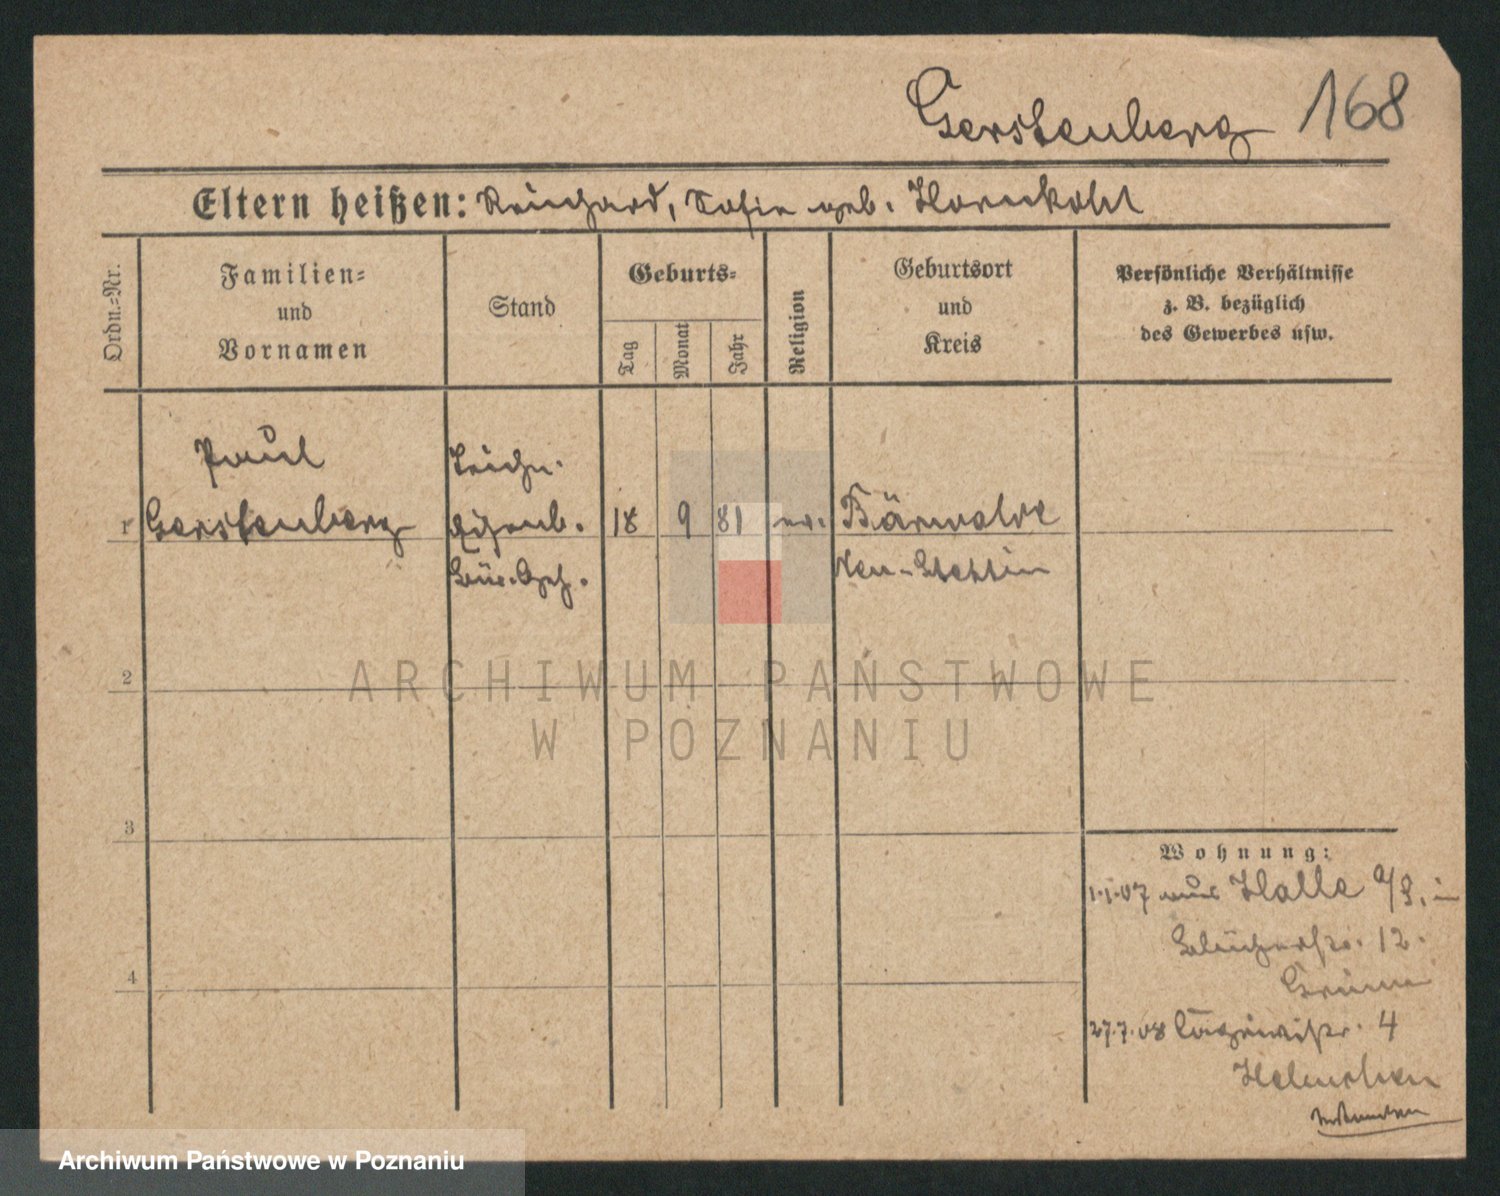 Gerstenberg 168
Eltern heißen: Reinhard, Sofie geb. Hornkohl
Ordn.-Nr.
Familien-
und
Vornamen
Stand
Geburts-
Tag
Monat
Jahr
Religion
Geburtsort
und
Kreis
Persönliche Verhältnisse
z. B. bezüglich
des Gewerbes usw.
Paul
1 Gerstenberg
Eisenb.
Bür. Geh.
18 9 81 ev.
Bärwalde
Neu-Stettin
2
3
4
Wohnung:
1.1.07 aus Halle a/S. in
Blücherstr. 12.
27.7.08 4
ARCHIWUM PAŃSTWOWE
W POZNANIU
Archiwum Państwowe w Poznaniu